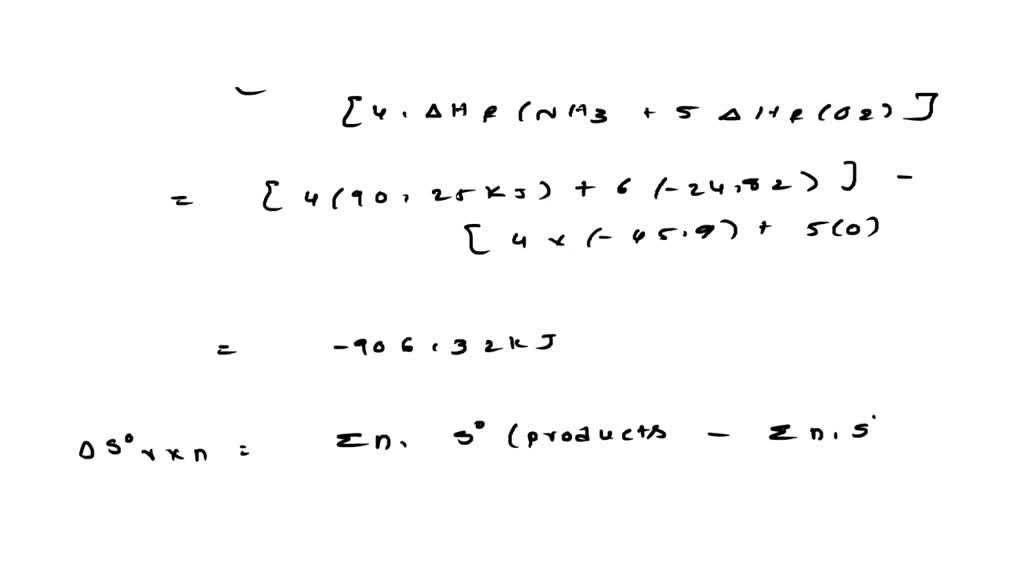 - [4. ΔHf (NH3 + 5 ΔHf (O2)]
= [4(90.25KJ) + 6(-24.82)] -
[4 x (-45.9) + 5(0)
= -906.32kJ
ΔS°rxn = Σn. S° (products - Σn.S°